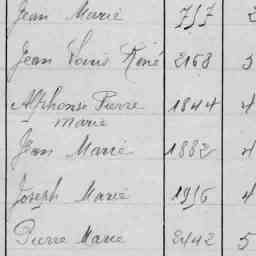 Jean Marie 757 2
Jean Louis René 2168 3
Alphonse Pierre 1844 4
Marie
Jean Marie 1882 4
Joseph Marie 1916 4
Pierre Marie 2442 5